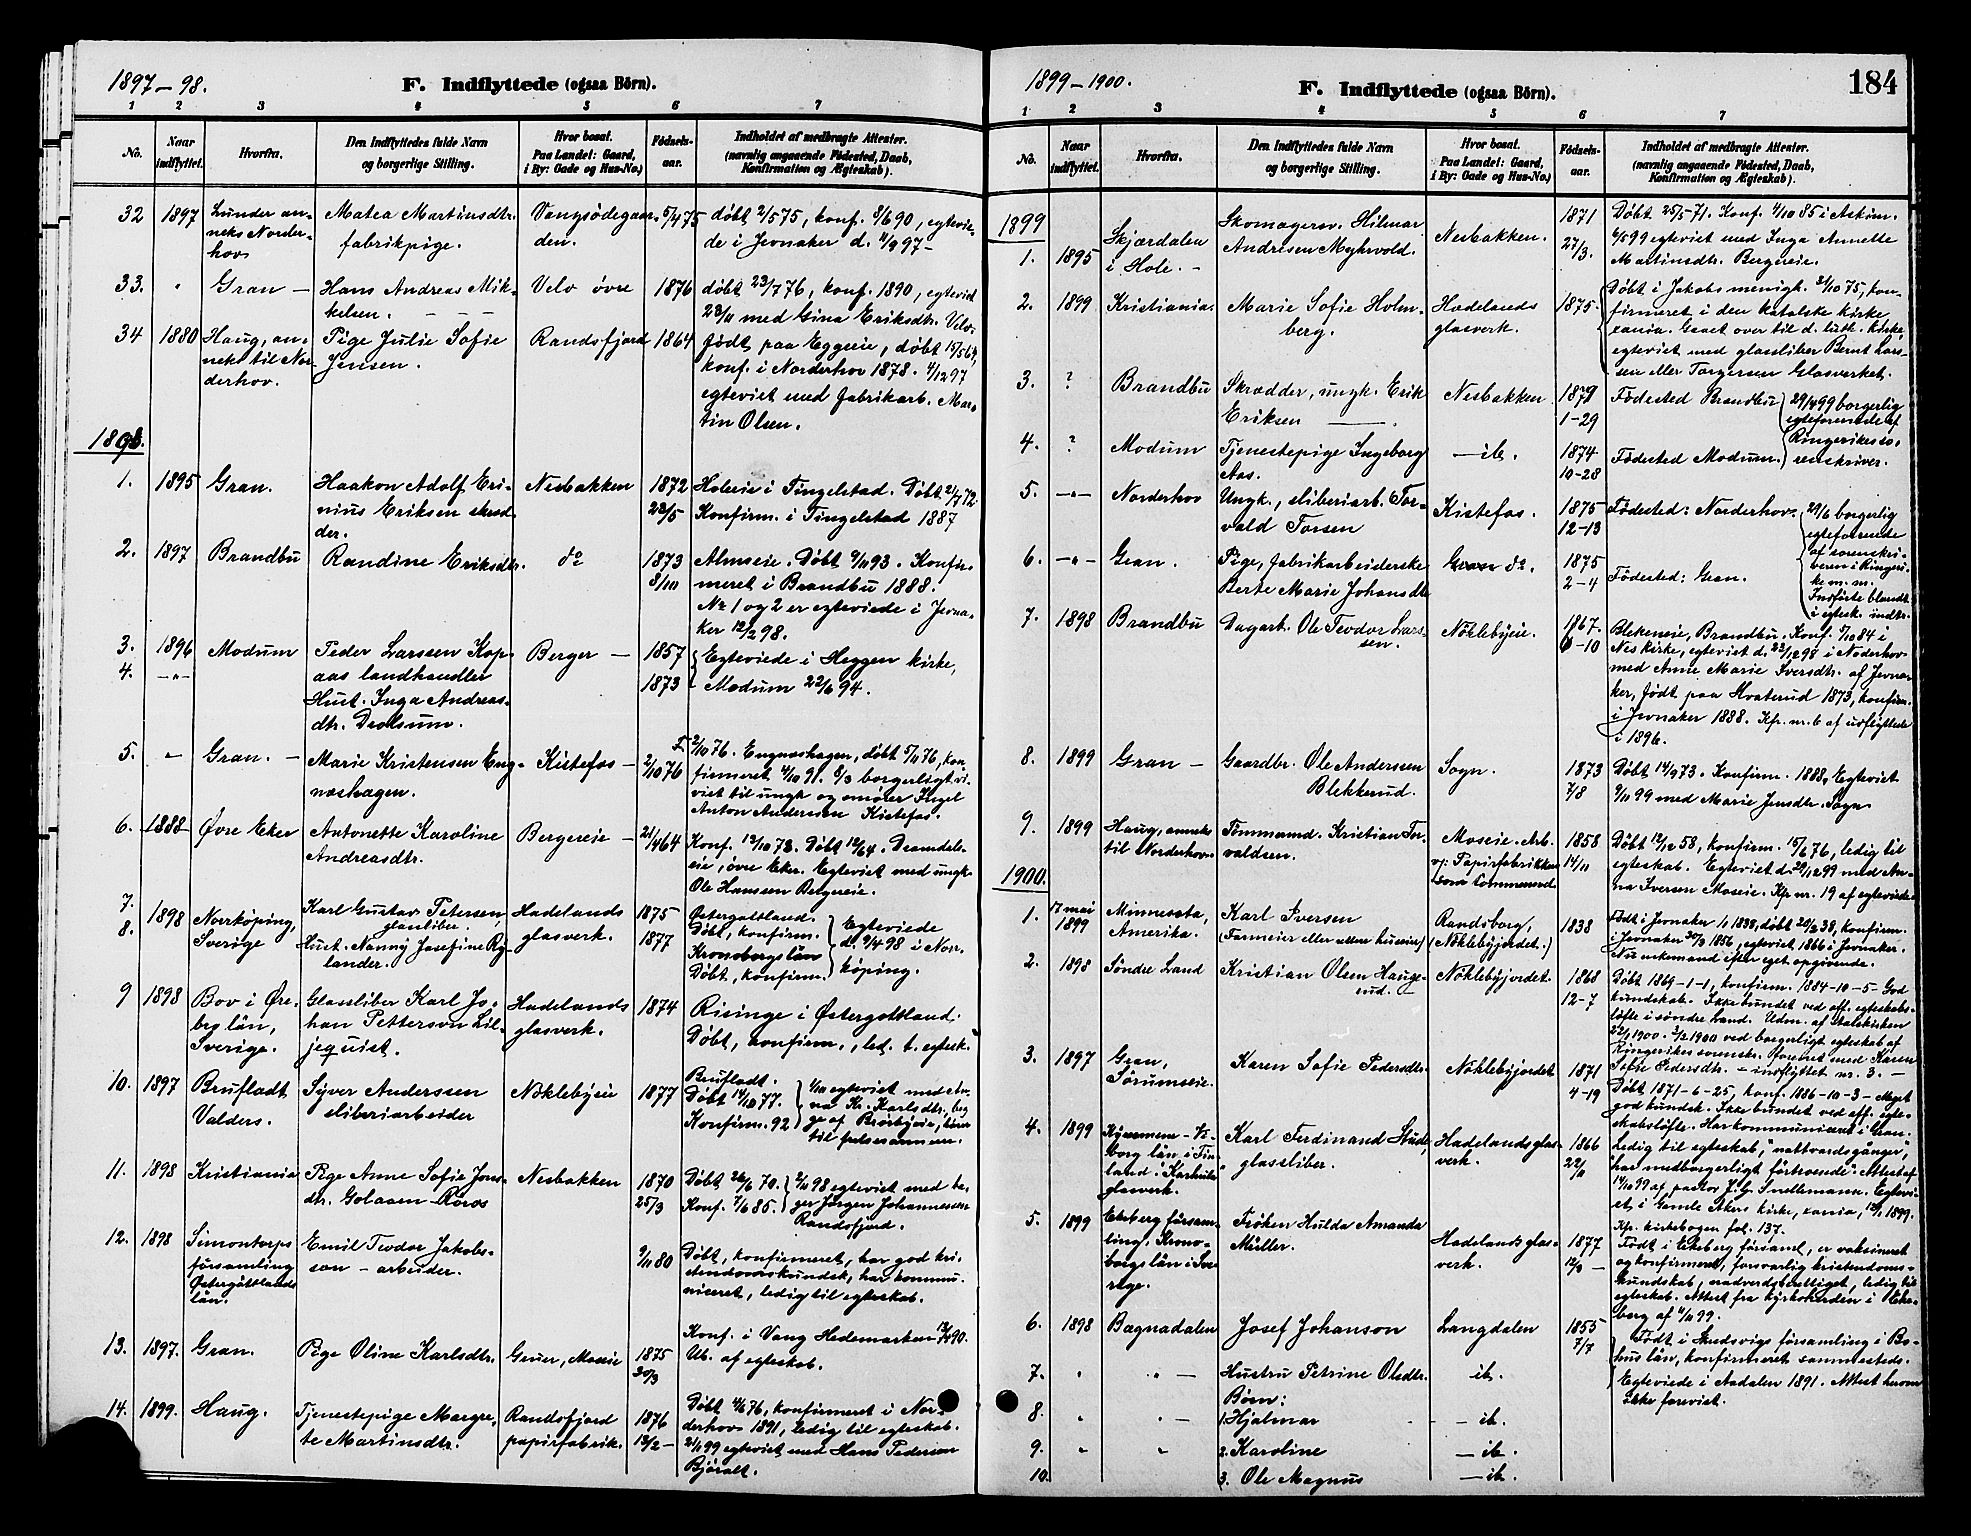 1897-98.
F. Indflyttede (ogsaa Börn).
1 2 3 4 5 6 7
No.
Naar indflyttet.
Hvorfra.
Den Indflyttedes fulde Navn
og borgerlige Stilling.
Hvor bosat.
Paa Landet: Gaard,
i By: Gade og Hus-No.)
Födsels-
aar.
Indholdet af medbragte Attester.
(navnlig angaaende Födested, Daab,
Konfirmation og Ægteskab).
32 1897 Lunder an-
neks Norder-
hov
Matea Martinsdtr.
fabrikpige.
Vangsödegaar-
den.
5/4 75
döbt 2/5 75, konf. 8/6 90, egtevie-
de i Jevnaker d. 4/9 97 -
33. " Gran -
Hans Andreas Mik-
kelsen.
Velo övre
1876
döbt 23/7 76, konf. 1890, egteviet
28/11 med Gina Eriksdtr. Velo.
34 1880 Haug, an-
neks til Nor-
derhov.
Pige Julie Sofie
Jensen.
Randsfjord
1864
födt paa Eggereie, döbt 15/5 64,
konf. i Norderhov 1878. 4/12 97
egteviet med fabrikarb. Mar-
tin Olsen.
1898.
1. 1895 Gran.
Haakon Adolf Eri-
nius Eriksen skræd-
der.
Nesbakken
1872
28/5
Holereie i Tingelstad. Döbt 21/7 72.
Konfirm. i Tingelstad 1887
2. 1897 Brandbu
Randine Eriksdtr.
do
1873
8/10
Almseie. Döbt 9/11 93. Konfir-
meret i Brandbu 1888.
No 1 og 2 er egteviede i Jevna-
ker 12/2 98.
3. 1896 Modum
4. -"-
Peder Larssen Kop-
aas landhandler
Hust. Inga Andreas-
dtr. Drolsum.
Berger -
1857
1873
Egteviede i Heggen kirke,
Modum 22/6 94.
5. " Gran. -
Marie Kristensen Eng-
næshagen.
Kistefos -
2/10 76
2/10 76. Engnæshagen, döbt 5/11 76, kon-
firmeret 4/10 91. 8/3 borgerligt vi-
viet til ungk og smörer Ingel
Anton Andersen Kistefos.
6. 1888 Övre Eker
Antonette Karoline
Andreasdtr.
Bergereie -
21/4 64
Konf. 13/10 78. Döbt 12/6 64. Dramdels-
eie, övre Eker. Egteviet med ungk.
Ole Hanssen Bergereie.
7.
8. 1898 Norrköping,
Sverige
Karl Gustav Petersen
glassliber.
Hust. Nanny Josefine Ry-
lander.
Hadelands
glasverk.
1875
1877
Östergötland.
Döbt, konfirm.
Kronobergs län
Döbt, konfirm.
Egteviede
d. 9/4 98 i Norr-
köping.
9 1898 Bov i Öre-
bro län,
Sverige.
Glassliber Karl Jo-
han Petterson Lil-
jequist.
Hadelands
glasverk.
1874
Risinge i Östergottland.
Döbt, konfirm., led. t. egtesk.
10. 1897 Brufladt,
Valders.
Syver Anderssen
sliberiarbeider
Nöklebyeie
1877
Brufladt.
Döbt 14/10 77.
Konfirm. 92
11. 1898 Kristiania
Pige Anne Sofie Jons-
dtr. Golaaen Röros
Nesbakken
1870
25/3
Döbt 26/6 70.
Konf. 7/6 85.
2/11 98 egteviet med ba-
ger Jörgen Johannessen
Randsfjord.
12. 1898 Simontorps
församling
Östergöttlands
län.
Emil Teodor Jakobs-
son - arbeider.
9/11 80
Döbt, konfirmeret, har god kri-
stendomskundsk., har kommu-
niceret, ledig til egteskab.
13. 1897. Gran.
Pige Oline Karlsdtr.
Gruer, Moseie
1875
30/3
Konf. i Vang Hedemarken 90.
Ub. af egteskab.
14. 1899. Haug.
Tjenestepige Margre-
te Martinsdtr.
Randsfjord
papirfabrik.
1876
13/2 -
Döbt 4/6 76, konfirmeret i Nor-
derhov 1891, ledig til egteskab.
21/1 99 egteviet med Hans Pedersen
Björalt.
1899-1900.
F. Indflyttede (ogsaa Börn).
184
1 2 3 4 5 6 7
No.
Naar indflyttet.
Hvorfra.
Den Indflyttedes fulde Navn
og borgerlige Stilling.
Hvor bosat.
Paa Landet: Gaard,
i By: Gade og Hus-No.)
Födsels-
aar.
Indholdet af medbragte Attester.
(navnlig angaaende Födested, Daab,
Konfirmation og Ægteskab).
1899
1. 1895 Skjærdalen
i Hole. -
Skomagersv. Hilmar
Andrisen Myhrvold.
Nesbakken.
1871
27/3.
Döbt 25/5 - 71. Konf. 4/10 85 i Askim.
6/5 99 egteviet med Inga Annette
Martinsdtr. Bergereie.
2. 1899 Kristiania.
Marie Sofie Holm-
berg.
Hadelands
glasverk.
1875
Döbt i Jakobs menigh. 31/10 75, kon-
firmeret i den katolske kirke
xania. Gaaet over til d. luth. kirke,
egteviet med glassliber Bernt Lars-
sen eller Torgersen Glasverket.
3. ? Brandbu
Skrædder, ungk. Erik
Eriksen
Nesbakken
1879
1-29
Födested Brandbu
29/4 99 borgerlig
egteforenede af
Ringerikes so-
renskriver.
4. ? Modum
Tjenestepige Ingeborg
Aas.
-ib.
1874
10-28
Födested Modum.
5. -"- Norderhov
Ungk., sliberiarb. Tor-
vald Torsen
Kistefos.
1875
12-13
Födested: Norderhov.
29/6 borgerlig
egteforenede
af sorenskri-
veren i Ringeri-
ke m. m.
Indförte blandt
i egtesk. indtr.
6. -"- Gran.
Pige, fabrikarbeiderske
Berte Marie Johansdtr
do.
1875
2-4
Födested: Gran.
7. 1898 Brandbu
Dagarb. Ole Teodor Lars-
sen.
Nöklebyeie.
1867.
6-10
Blekeneie, Brandbu. Konf. 5/10 84 i
Nes kirke, egteviet d. 22/12 98 i Norderhov
med Anne Marie Iversdtr. af Jevna-
ker, födt paa Hvaterud 1873, konfirm.
i Jevnaker 1888. Kfr. nr. 6 af udflyttede
i 1896.
8. 1899 Gran -
Gaardbr. Ole Anderssen
Blekkerud.
Sogn.
1873
7/8
Döbt 14/9 73. Konfirm. 1888, Egteviet
9/11 99 med Marie Jensdtr. Sogn
9. 1899 Haug, anneks
til Norderhov
Tömmermd. Kristian Tor-
valdsen.
Moseie. Arb.
v. Papirfabrikken
1858
14/11
Döbt 12/12 58, konfirm. 15/6 76, ledig til
egteskab. Egteviet d. 29/12 99 med An-
na Iversen Moseie. Kfr. nr. 19 af egteviede
1900.
1. 17 mai
1899
Minnesota,
Amerika.
Karl Iversen
Randsborg,
(Nöklebyjordet.)
1838
Födt i Jevnaker 1838, döbt 20/2 38, konfirm.
i Jevnaker 1856, egteviet 1866 i Jevnaker.
Nu enkemand efter eget opgivende.
2. 1898 Söndre Land
Kristian Olsen Hauge-
rud. -
Nöklebyjordet.
1868
12-7
Döbt 1869-1-1, konfirm. 1884-10-5. God
kundskab. Ikke bundet ved off. egteskabs-
löfte i söndre Land. Udm. af statskirken
22/1 1900. 3/2 1900 ved borgerligt egteskab af
Ringerikes sorenskr. forenet med Karen
Sofie Pedersdtr. - indflyttet nr. 3. -
3. 1897 Gran,
Sörumseie.
Karen Sofie Pedersdtr.
Nöklebyjordet
1871
4-19
Döbt 1871-6-25, konf. 1886-10-3 - Meget
god kundsk. Ikke bundet ved off. egte-
skabslöfte. Har kommuniceret i Gran.
4. 1899 Kyremem - Vi-
borg län i Fin-
land. Karhula
glasverk.
Karl Ferdinand Stude,
glassliber.
Hadelands glas-
verk.
1866
22/11
Ledig til egteskab, "nattvardsgänger,
har medborgerligt förtroende". Attest af
14/10 99 af pastor J. G. Snellmann. Egtevi-
et i Gamle Akers kirke, xania, 12/11 1899.
Kfr. kirkebogen fol. 137.
5. 1899 Ekeberg försam-
ling, Krono-
borgs län i Sve-
rige.
Fröken Hulda Amanda
Müller.
Hadelands glas-
verk.
1877
12/9 -
Födt i Ekeberg församl., er vaksineret
og konfirmeret, forsvarlig kristendoms-
kundskab, nadverdsberettiget, ledig til
egteskab. Attest fra kyrkoherden i Eke-
berg af 4/11 99.
6. 1898 Bægnadalen
Josef Johanson
Langdalen
1855
7/7
Födt i Skredsvigs församling i Bo-
hus län, konfirmeret sammesteds.
Egteviede i Aadalen 1891. Attest herom
ikke forevist.
7. " " -
Hustru Petrine Olsdtr.
-ib.
8. " " -
Börn:
1. Hjalmar
-ib.
9. " "
2. Karoline
-ib.
10.
3. Ole Magnus
-ib.